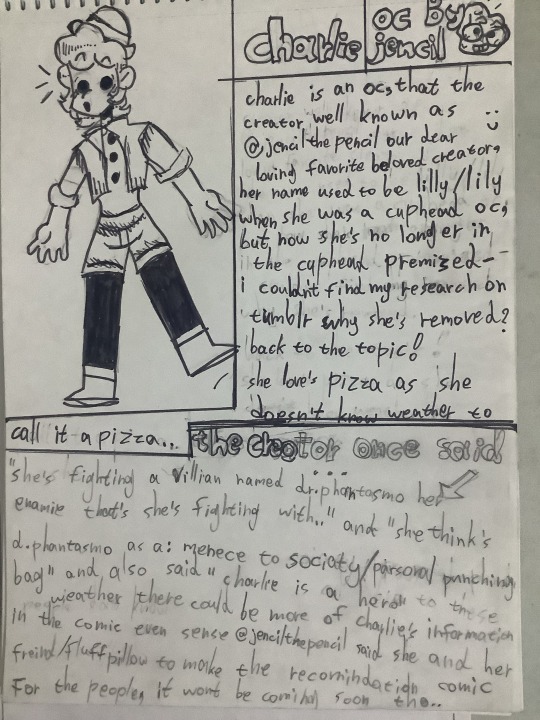 charlie
oc by
jencil
charlie is an oc, that the
creator well known as
@jencilthepencil our dear
loving favorite beloved creator,
her name used to be lilly/lily
when she was a cuphead oc,
but now she's no longer in
the cuphead premized-
i couldn't find my research on
tumblr why she's removed?
back to the topic!
she love's pizza as she
doesn't know weather to
call it a pizza...
the creator once said
...
"she's fighting a villian named dr.phantasmo her
enamie that's she's fighting with.." and "she think's
d.phantasmo as a: menece to sociaty/parsonal punching
bag" and also said "charlie is a hero" to these
weather there could be more of charlie's information
in the comic even sense @jencilthepencil said she and her
freind/fluffpillow to make the recomindation comic
For the people, it wont be coming soon tho..